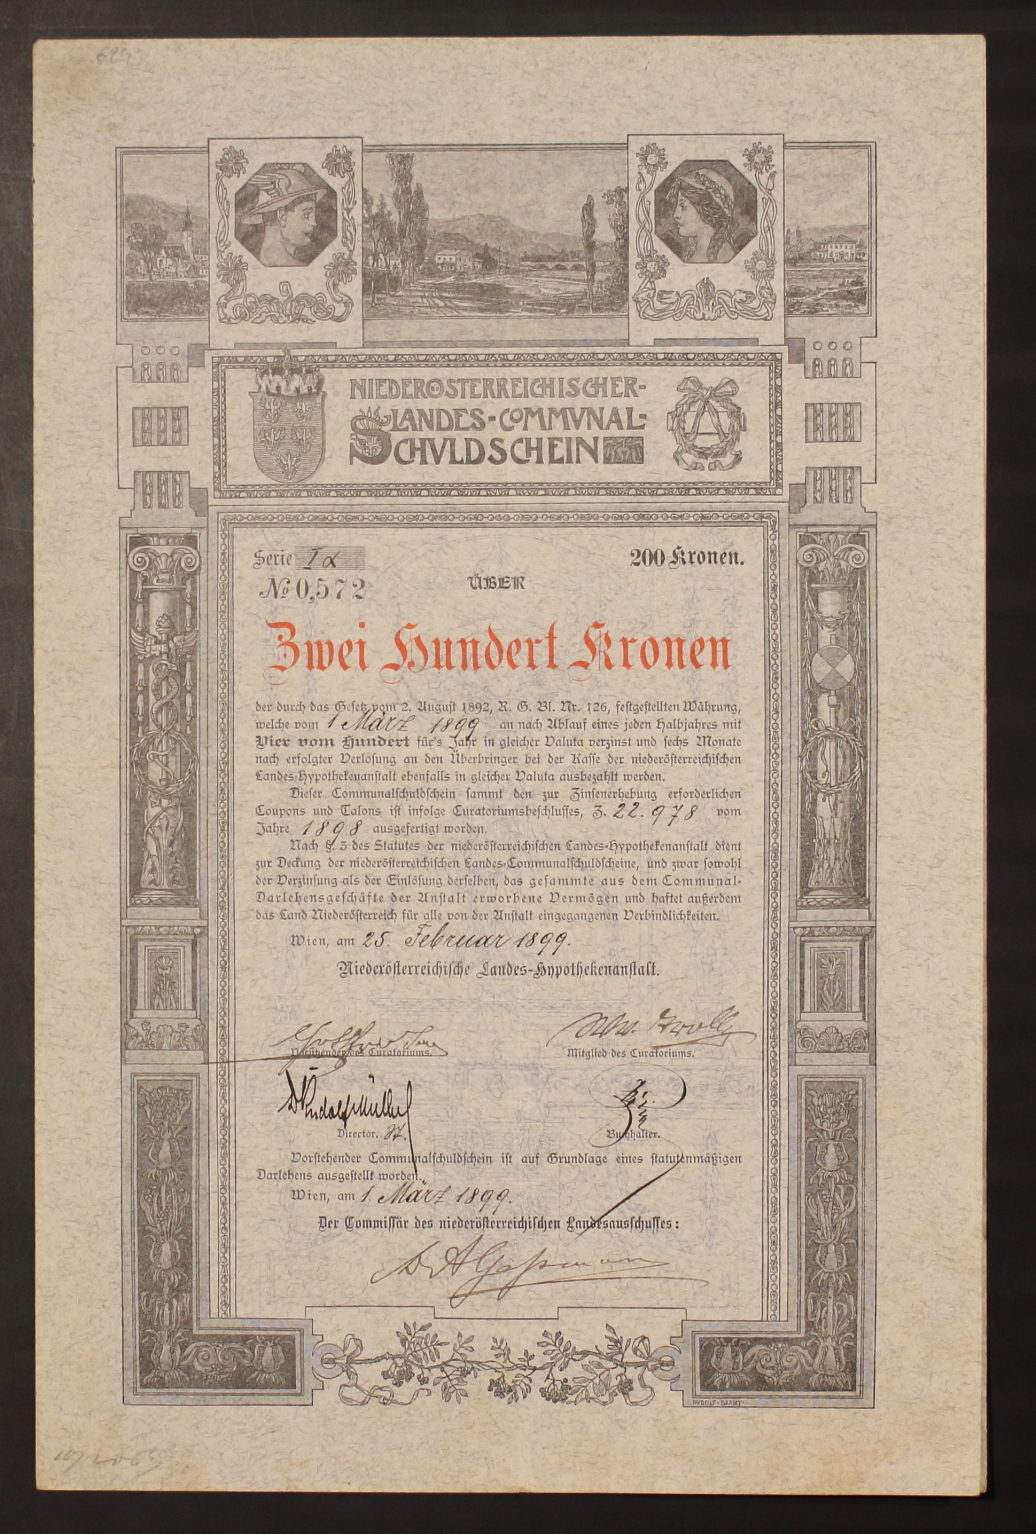 NIEDERÖSTERREICHISCHER-
LANDES-COMMVNAL-
SCHVLDSCHEIN
Serie I α 200 Kronen.
№ 0,572
ÜBER
Zwei Hundert Kronen
der durch das Gesetz vom 2. August 1892, R. G. Bl. Nr. 126, festgestellten Währung,
welche vom 1 März 1899 an nach Ablauf eines jeden Halbjahres mit
Vier vom Hundert für's Jahr in gleicher Valuta verzinst und sechs Monate
nach erfolgter Verlosung an den Überbringer bei der Kasse der niederösterreichischen
Landes-Hypothekenanstalt ebenfalls in gleicher Valuta ausbezahlt werden.
Dieser Communalschuldschein sammt den zur Zinsenerhebung erforderlichen
Coupons und Talons ist infolge Curatoriumsbeschlusses, Z. 22.978 vom
Jahre 1898 ausgefertigt worden.
Nach §. 3 des Statutes der niederösterreichischen Landes-Hypothekenanstalt dient
zur Deckung der niederösterreichischen Landes-Communalschuldscheine, und zwar sowohl
der Verzinsung als der Einlösung derselben, das gesammte aus dem Communal-
Darlehensgeschäfte der Anstalt erworbene Vermögen und haftet außerdem
das Land Niederösterreich für alle von der Anstalt eingegangenen Verbindlichkeiten.
Wien, am 25. Februar 1899.
Niederösterreichische Landes-Hypothekenanstalt.
Vorsitzender des Curatoriums.
Mitglied des Curatoriums.
Dr Rudolf Müller
Director.
Buchhalter.
Vorstehender Communalschuldschein ist auf Grundlage eines statutenmäßigen
Darlehens ausgestellt worden.
Wien, am 1. März 1899.
Der Commissär des niederösterreichischen Landesausschusses: